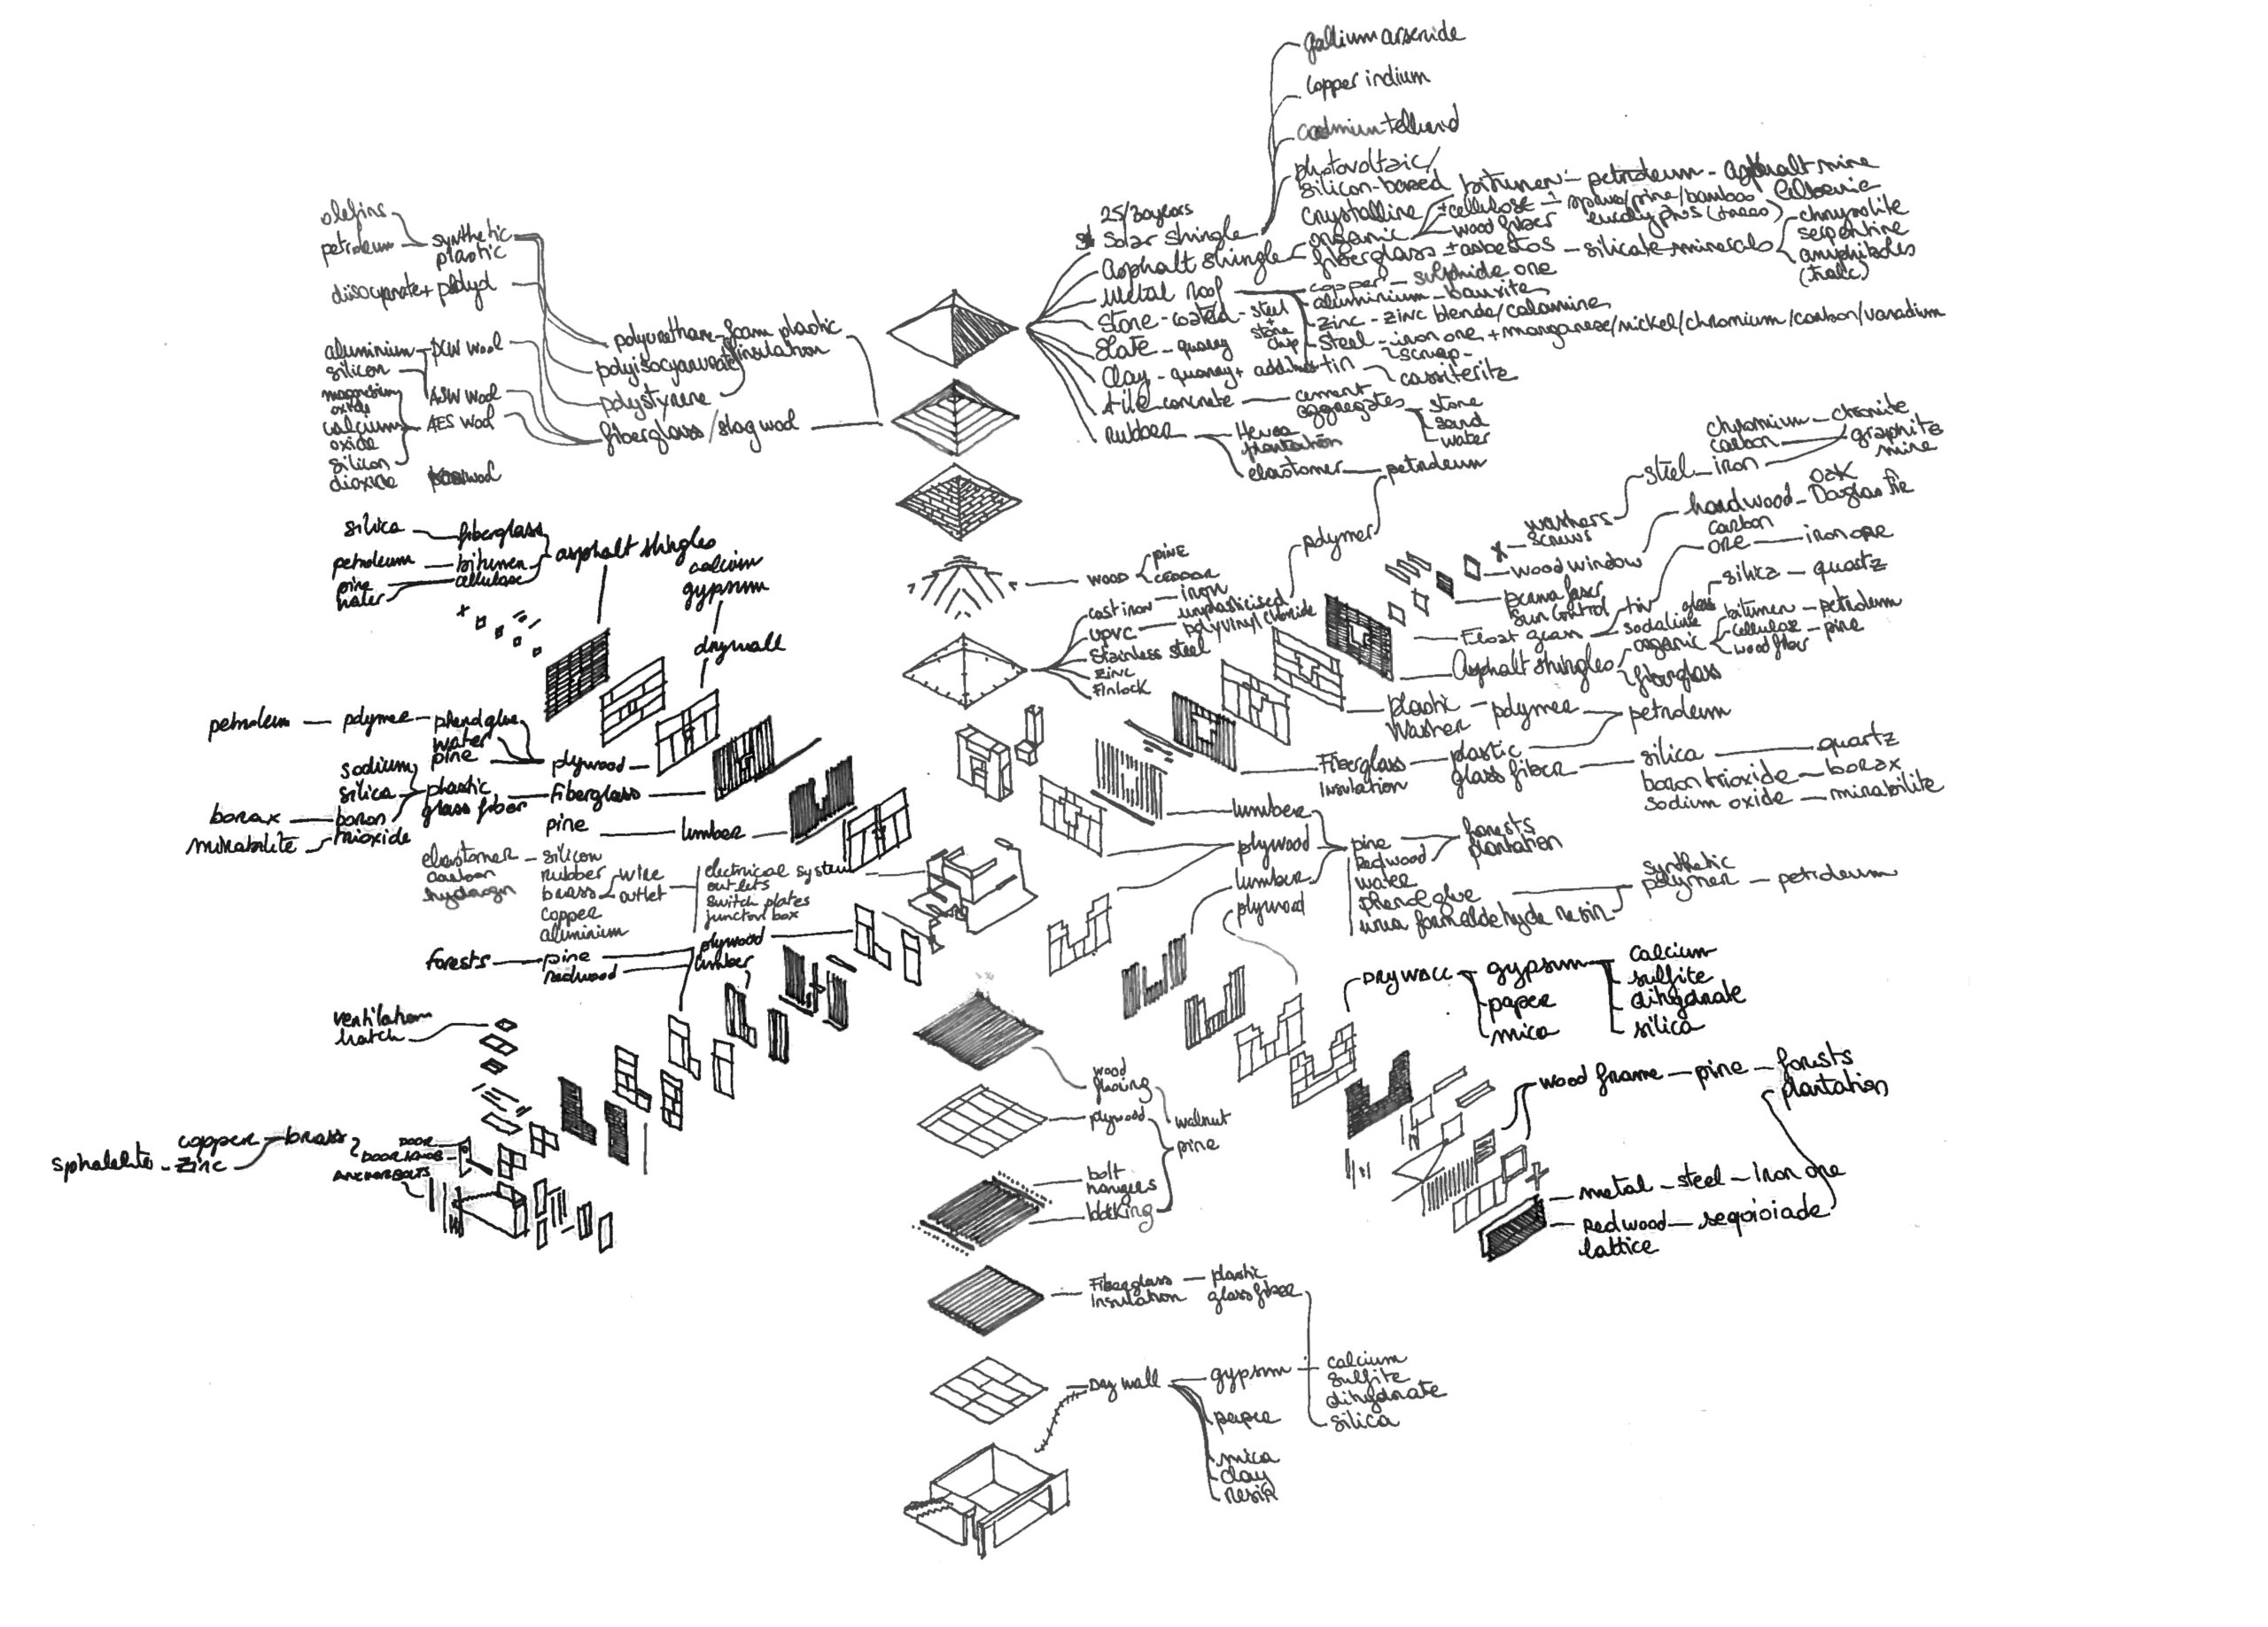 gallium arsenide
copper indium
cadmium tellurid
photovoltaic/
silicon-based
crystalline
bitumen - petroleum - asphalt mine
± cellulose - spruce/pine/bamboo
wood fiber
eucalyptus
chrysolite
serpentine
amphiboles
(talc)
25/30 years
Solar shingle
Asphalt shingle
organic
fiberglass ± asbestos - silicate minerals
Metal Roof
copper - sulphide ore
aluminium - bauxite
zinc - zinc blende/calamine
steel - iron ore + manganese/nickel/chromium/carbon/vanadium
scrap
tin
cassiterite
Stone-coated - steel
+
stone
chip
Slate - quarry
Clay - quarry +
tile concrete
cement
aggregates
stone
sand
water
Rubber
Hevea
plantation
elastomer - petroleum
olefins
petroleum
synthetic
plastic
polyurethane-foam plastic
insulation
polystyrene
fiberglass/slag wool
aluminium
silicon
PCW wool
ASW wool
AES wool
magnesium
oxide
calcium
oxide
silicon
dioxide
silica
fiberglass
petroleum
bitumen
pine
water
cellulose
asphalt shingles
calcium
gypsum
drywall
wood
pine
cast iron - iron
UPVC
unplasticised
polyvinyl chloride
polymer
Stainless steel
Zinc
Finlock
chromium - chromite
carbon
graphite
mine
steel - iron
washers
screws
hardwood
oak
Douglas fir
wood window
carbon
ore - iron ore
sun control
tin
Float glass
sodalime
glass
silica - quartz
Asphalt shingles
organic
bitumen - petroleum
cellulose - pine
wood fiber
fiberglass
plastic - polymer
Washer
petroleum
Fiberglass
Insulation
plastic
glass fiber
silica - quartz
boron trioxide - borax
sodium oxide - mirabilite
petroleum - polymer - phenol glue
water
pine
plywood
sodium
silica
plastic
glass fiber
fiberglass
borax
boron
trioxide
mirabilite
pine
lumber
elastomer - silicon
carbon
hydrogen
rubber
brass
copper
aluminium
wire
outlet
electrical system
outlets
switch plates
junction box
forests
pine
redwood
plywood
lumber
lumber
plywood
lumber
plywood
pine
Redwood
water
phenol glue
urea formaldehyde resin
forests
plantation
synthetic
polymer - petroleum
Drywall
gypsum
paper
mica
calcium
sulfite
dihydrate
silica
wood frame - pine - forests
plantation
metal - steel - iron ore
Redwood - sequioiade
lattice
ventilation
hatch
sphalelite - zinc
copper
brass
DOOR
DOOR KNOB
ANCHOR BOLTS
wood
plywood
walnut
pine
bolt
hangers
Fiberglass
Insulation
plastic
glass fiber
Dry wall
gypsum
calcium
sulfite
dihydrate
silica
paper
mica
clay
resin